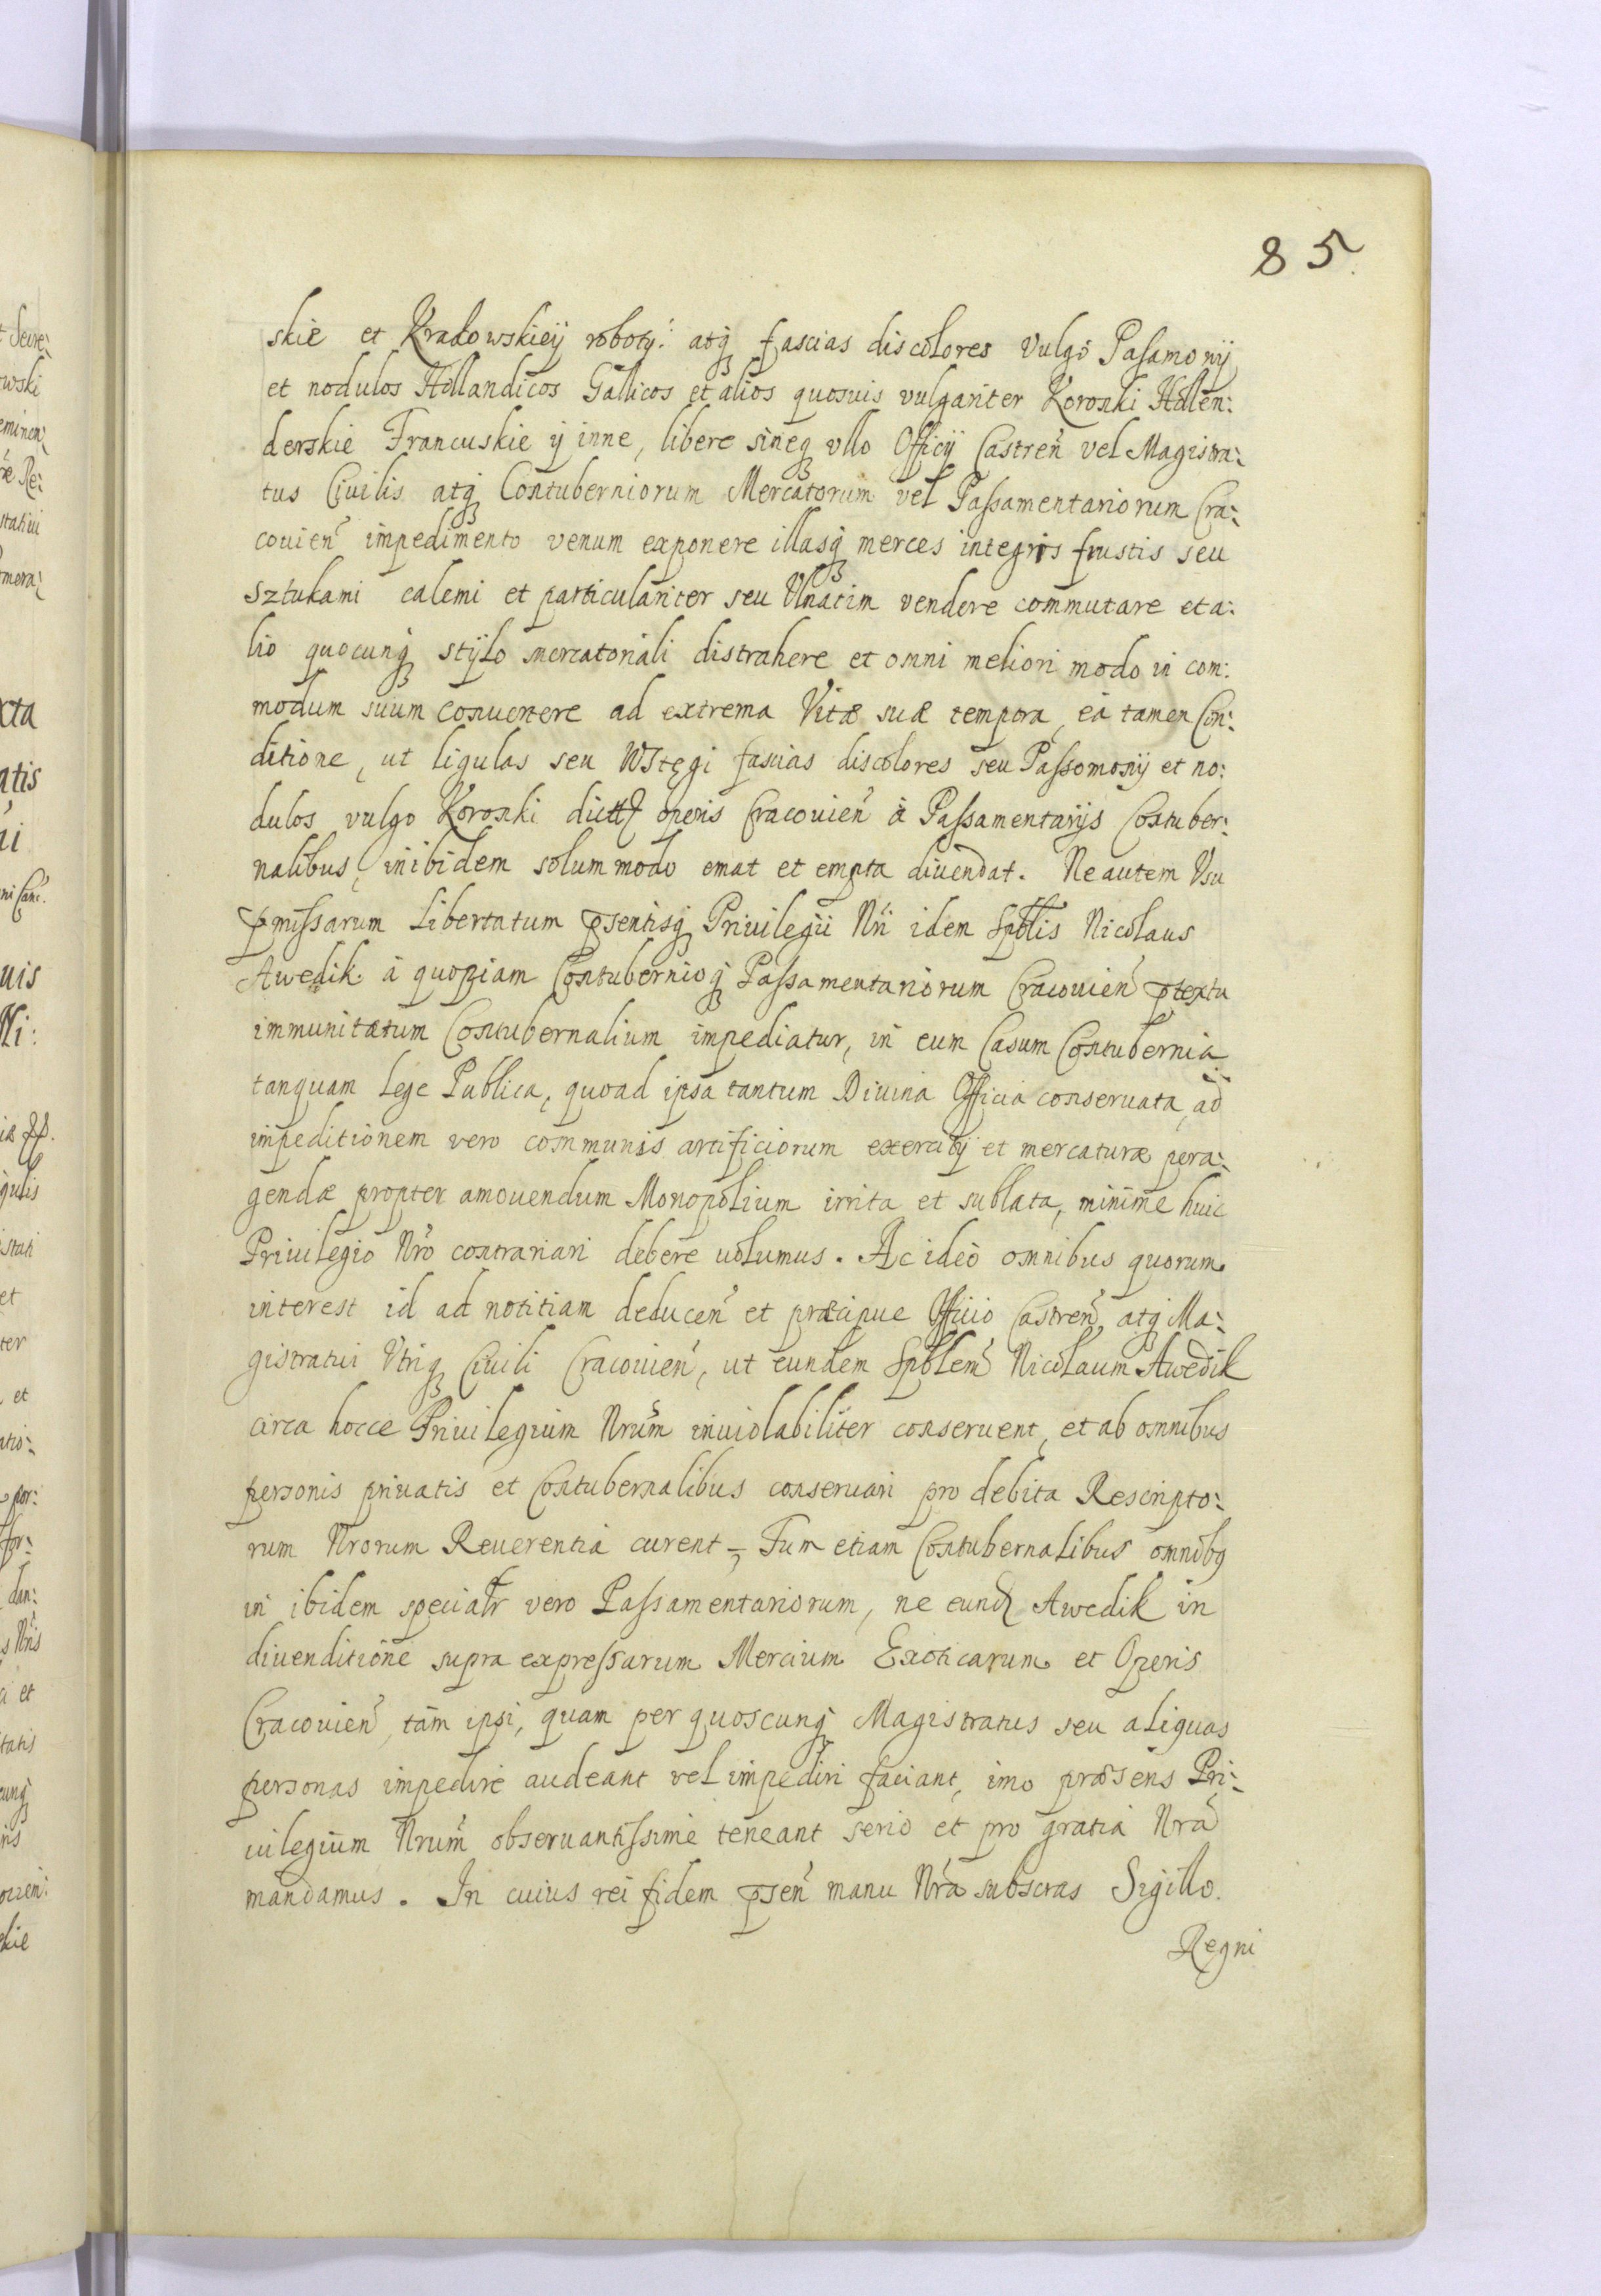 85.
skie et Krakowskieÿ robotÿ. atq fascias discolores vulgo Pasamonÿ
et nodulos Hollandicos Gallicos et alios quosuis vulgariter Koronki Hollen:
derskie Francuskie ÿ inne, libere sineq vllo Officÿ Castren vel Magistra:
tus Ciuilis atq Contuberniorum Mercatorum vel Passamentariorum Cra:
couien impedimento venum exponere illasq merces integris frustis seu
sztukami calemi et particulariter seu Vlnatim vendere commutare et a:
lio quocunq stÿlo mercatoriali distrahere et omni meliori modo in com:
modum suum conuertere ad extrema Vitæ suæ tempora, ea tamen Con:
ditione, ut ligulas seu Wstęgi fascias discolores seu Passomonÿ et no:
dulos vulgo Koronki dictt operis Cracouien à Passamentarÿs Contuber:
nalibus, inibidem solummodo emat et empta diuendat. Ne autem Vsu
pmissarum Libertatum psentisq Priuilegii Nri idem Spblis Nicolaus
Awedik à quopiam Contubernioq Passamentariorum Cracouien ptextu
immunitatum Contubernalium impediatur, in eum Casum Contubernia
tanquam Lege Publica, quoad ipsa tantum Diuina Officia conseruata, ad
impeditionem vero communis artificiorum exercitÿ et mercaturæ pera:
gendæ propter amouendum Monopolium irrita et sublata, minime huic
Priuilegio Nro contrariari debere uolumus. Ac ideò omnibus quorum
interest id ad notitiam deducen et præcipue Officio Castren, atq Ma:
gistratui Vtriq Ciuili Cracouien, ut eundem Spblem Nicolaum Awedik
circa hocce Priuilegium Nrum inuiolabiliter conseruent, et ab omnibus
personis priuatis et Contubernalibus conseruari pro debita Rescripto:
rum Nrorum Reuerentia curent, Tum etiam Contubernalibus omnibq
in ibidem speciatr vero Passamentariorum, ne eund Awedik in
diuenditione supra expressarum Mercium Exoticarum et Operis
Cracouien, tam ipsi, quam per quoscunq Magistratus seu aliquas
personas impedire audeant vel impediri faciant, imo præsens Pri:
uilegium Nrum obseruantissime teneant serio et pro gratia Nra
mandamus. In cuius rei fidem psen manu Nra subscras Sigillo.
Regni